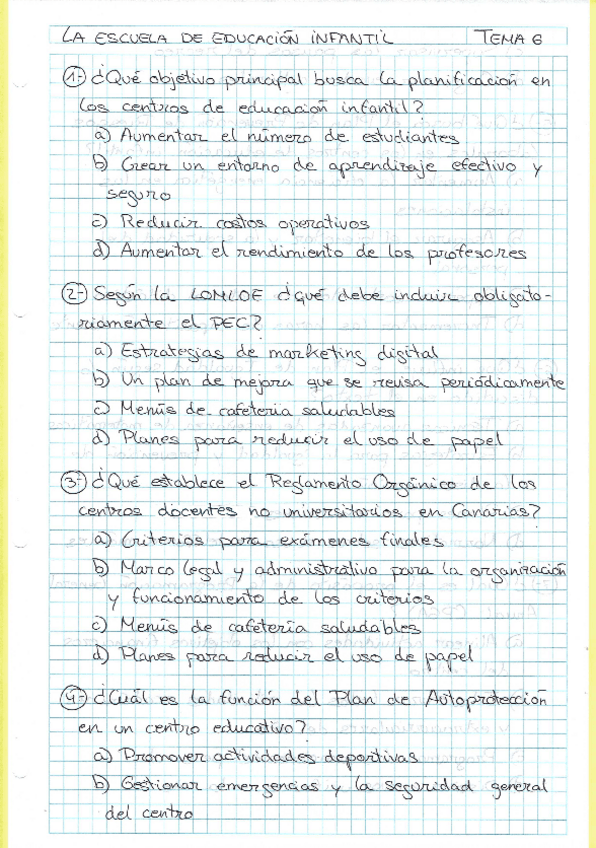 LA ESCUELA DE EDUCACIÓN INFANTIL TEMA 6
1-) ¿Qué objetivo principal busca la planificación en
los centros de educación infantil?
a) Aumentar el número de estudiantes
b) Crear un entorno de aprendizaje efectivo y
seguro
c) Reducir costos operativos
d) Aumentar el rendimiento de los profesores
2-) Según la LOMLOE ¿qué debe incluir obligato-
riamente el PEC?
a) Estrategias de marketing digital
b) Un plan de mejora que se revisa periódicamente
c) Menús de cafetería saludables
d) Planes para reducir el uso de papel
3-) ¿Qué establece el Reglamento Orgánico de los
centros docentes no universitarios en Canarias?
a) Criterios para exámenes finales
b) Marco legal y administrativo para la organización
y funcionamiento de los criterios
c) Menús de cafetería saludables
d) Planes para reducir el uso de papel
4-) ¿Cuál es la función del Plan de Autoprotección
en un centro educativo?
a) Promover actividades deportivas
b) Gestionar emergencias y la seguridad general
del centro